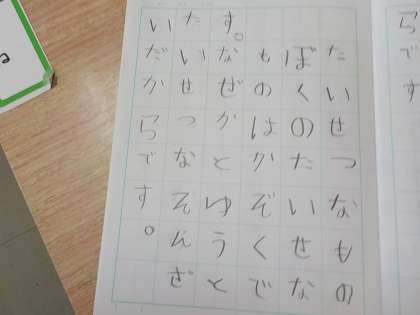 らです
たいせつなもの
ぼくのたいせな
ものはかぞくで
す。なぜかとゆうと
たいせつなそんざ
いだからです。